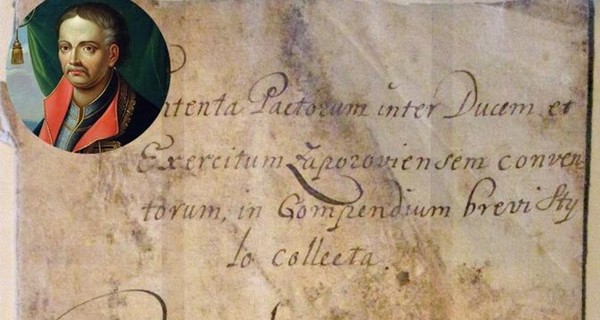 ntenta Pactorum inter Ducem et
Exercitum Zaporoviensem conven
torum, in Compendium brevi Sty
lo collecta.